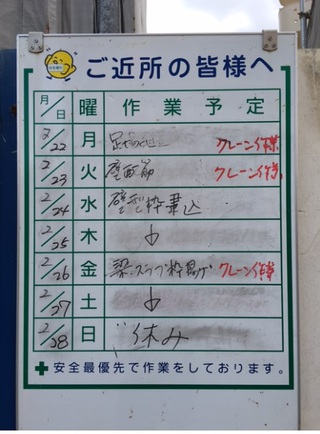 ご近所の皆様へ
月/日 曜 作業予定
2/22 月 クレーン作業
2/23 火 壁配筋 クレーン作業
2/24 水 壁型枠建込
2/25 木 ↓
2/26 金 梁、スラブ枠 クレーン作業
2/27 土 ↓
2/28 日 休み
安全最優先で作業をしております。